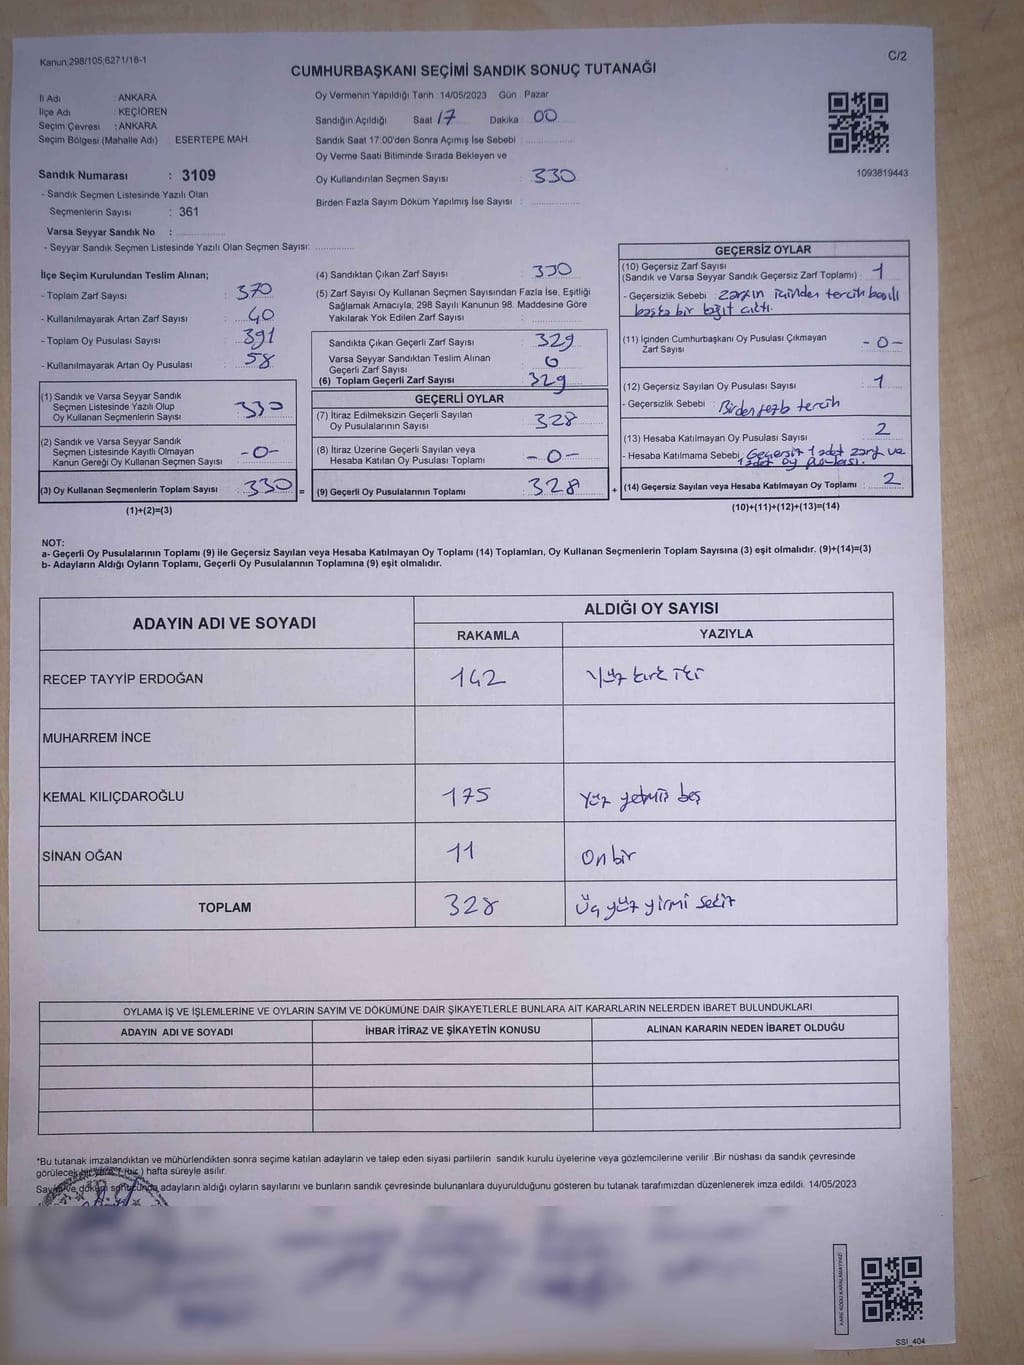 Kanun;298/105;6271/18-1
C/2
CUMHURBAŞKANI SEÇİMİ SANDIK SONUÇ TUTANAĞI
İl Adı : ANKARA
İlçe Adı : KEÇİÖREN
Seçim Çevresi : ANKARA
Seçim Bölgesi (Mahalle Adı) : ESERTEPE MAH.
Sandık Numarası : 3109
- Sandık Seçmen Listesinde Yazılı Olan
Seçmenlerin Sayısı : 361
Varsa Seyyar Sandık No :
- Seyyar Sandık Seçmen Listesinde Yazılı Olan Seçmen Sayısı:
Oy Vermenin Yapıldığı Tarih : 14/05/2023 Gün : Pazar
Sandığın Açıldığı Saat 17 Dakika 00
Sandık Saat 17:00'den Sonra Açımış İse Sebebi :
Oy Verme Saati Bitiminde Sırada Bekleyen ve
Oy Kullandırılan Seçmen Sayısı : 330
Birden Fazla Sayım Döküm Yapılmış İse Sayısı :
1093819443
İlçe Seçim Kurulundan Teslim Alınan;
- Toplam Zarf Sayısı : 370
- Kullanılmayarak Artan Zarf Sayısı : 40
- Toplam Oy Pusulası Sayısı : 391
- Kullanılmayarak Artan Oy Pusulası : 58
(1) Sandık ve Varsa Seyyar Sandık
Seçmen Listesinde Yazılı Olup
Oy Kullanan Seçmenlerin Sayısı : 330
(2) Sandık ve Varsa Seyyar Sandık
Seçmen Listesinde Kayıtlı Olmayan
Kanun Gereği Oy Kullanan Seçmen Sayısı : -0-
(3) Oy Kullanan Seçmenlerin Toplam Sayısı : 330 =
(1)+(2)=(3)
(4) Sandıktan Çıkan Zarf Sayısı : 330
(5) Zarf Sayısı Oy Kullanan Seçmen Sayısından Fazla İse, Eşitliği
Sağlamak Amacıyla, 298 Sayılı Kanunun 98. Maddesine Göre
Yakılarak Yok Edilen Zarf Sayısı :
Sandıkta Çıkan Geçerli Zarf Sayısı : 329
Varsa Seyyar Sandıktan Teslim Alınan
Geçerli Zarf Sayısı : 0
(6) Toplam Geçerli Zarf Sayısı : 329
GEÇERLİ OYLAR
(7) İtiraz Edilmeksizin Geçerli Sayılan
Oy Pusulalarının Sayısı : 328
(8) İtiraz Üzerine Geçerli Sayılan veya
Hesaba Katılan Oy Pusulası Toplamı : -0-
(9) Geçerli Oy Pusulalarının Toplamı : 328 +
GEÇERSİZ OYLAR
(10) Geçersiz Zarf Sayısı
(Sandık ve Varsa Seyyar Sandık Geçersiz Zarf Toplamı) : 1
- Geçersizlik Sebebi : zarfın içinden tercih basılı
başka bir kağıt çıktı.
(11) İçinden Cumhurbaşkanı Oy Pusulası Çıkmayan
Zarf Sayısı : -0-
(12) Geçersiz Sayılan Oy Pusulası Sayısı : 1
- Geçersizlik Sebebi : Birden fazla tercih
(13) Hesaba Katılmayan Oy Pusulası Sayısı : 2
- Hesaba Katılmama Sebebi : Geçersiz 1 adet zarf ve
1 adet oy pusulası.
(14) Geçersiz Sayılan veya Hesaba Katılmayan Oy Toplamı : 2
(10)+(11)+(12)+(13)=(14)
NOT:
a- Geçerli Oy Pusulalarının Toplamı (9) ile Geçersiz Sayılan veya Hesaba Katılmayan Oy Toplamı (14) Toplamları, Oy Kullanan Seçmenlerin Toplam Sayısına (3) eşit olmalıdır. (9)+(14)=(3)
b- Adayların Aldığı Oyların Toplamı, Geçerli Oy Pusulalarının Toplamına (9) eşit olmalıdır.
ADAYIN ADI VE SOYADI
ALDIĞI OY SAYISI
RAKAMLA YAZIYLA
RECEP TAYYİP ERDOĞAN 142 Yüz kırk iki
MUHARREM İNCE
KEMAL KILIÇDAROĞLU 175 Yüz yetmiş beş
SİNAN OĞAN 11 On bir
TOPLAM 328 Üç yüz yirmi sekiz
OYLAMA İŞ VE İŞLEMLERİNE VE OYLARIN SAYIM VE DÖKÜMÜNE DAİR ŞİKAYETLERLE BUNLARA AİT KARARLARIN NELERDEN İBARET BULUNDUKLARI
ADAYIN ADI VE SOYADI İHBAR İTİRAZ VE ŞİKAYETİN KONUSU ALINAN KARARIN NEDEN İBARET OLDUĞU
*Bu tutanak imzalandıktan ve mühürlendikten sonra seçime katılan adayların ve talep eden siyasi partilerin sandık kurulu üyelerine veya gözlemcilerine verilir .Bir nüshası da sandık çevresinde
görülecek bir yere 1 (bir ) hafta süreyle asılır.
Sayım ve döküm sonucunda adayların aldığı oyların sayılarını ve bunların sandık çevresinde bulunanlara duyurulduğunu gösteren bu tutanak tarafımızdan düzenlenerek imza edildi. 14/05/2023
KARE KODU KARALAMAYINIZ!
SSI_404